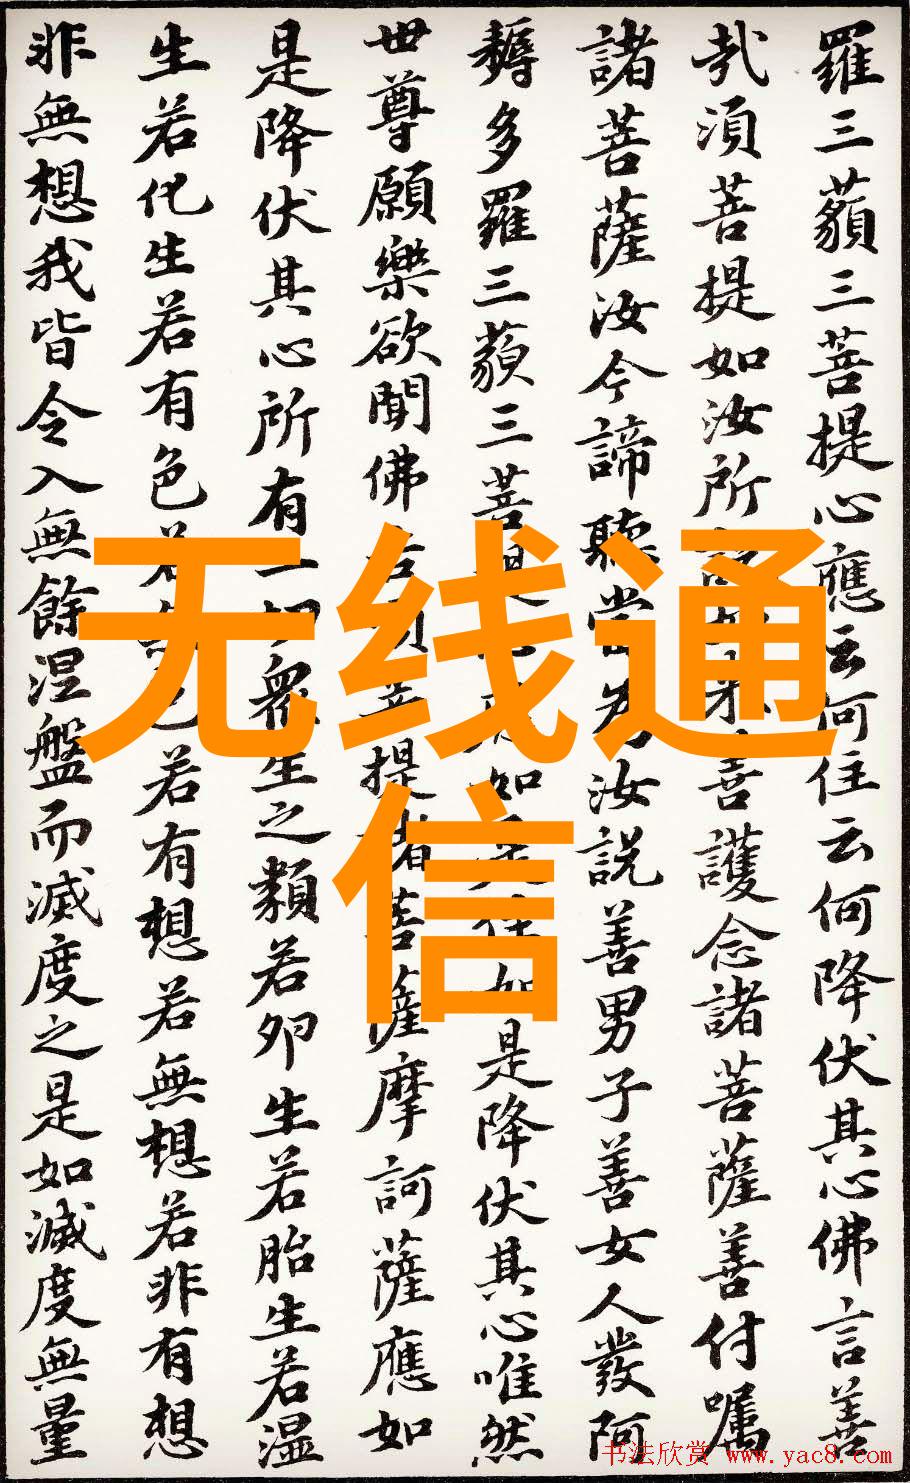 羅三藐三菩提心應云何住云何降伏其心佛言善
哉須菩提如汝所說如來善護念諸菩薩善付囑
諸菩薩汝今諦聽當為汝說善男子善女人發阿
耨多羅三藐三菩提心應如是住如是降伏其心唯然
世尊願樂欲聞佛告須菩提諸菩薩摩訶薩應如
是降伏其心所有一切眾生之類若卵生若胎生若湿
生若化生若有色若無色若有想若無想若非有想
非無想我皆令入無餘涅盤而滅度之是如滅度無量
无线通
信
书法欣赏 www.yac8.com